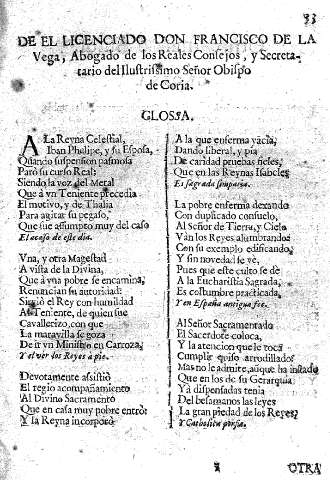 93
DE EL LICENCIADO DON FRANCISCO DE LA
Vega, Abogado de los Reales Consejos, y Secreta-
tario del Ilustrissimo Señor Obispo
de Coria.
GLOSSA.
A La Reyna Celestial,
Iban Phelipe, y su Esposa,
Quando suspension pasmosa
Parò su curso Real:
Siendo la voz del Metal
Que à vn Teniente precedia
El motivo, y de Thalia
Para agitar su pegaso,
Que fue assumpto muy del caso
El acaso de este dia.
Vna, y otra Magestad
A vista de la Divina,
Que à vna pobre se encamina,
Renuncian su autoridad:
Siguiò el Rey con humildad
Al Teniente, de quien fue
Cavallerizo, con que
La maravilla se goza
De ir vn Ministro en Carroza,
Y el ver los Reyes a pie.
Devotamente assistiò
El regio acompañamiento
Al Divino Sacramento
Que en casa muy pobre entrò:
Y la Reyna incorporò
A la que enferma yacia,
Dando liberal, y pia
De caridad pruebas fieles,
Que en las Reynas Isabeles
Es sagrada simpatia.
La pobre enferma dexando
Con duplicado consuelo,
Al Señor de Tierra, y Cielo
Vàn los Reyes alumbrando:
Con su exemplo edificando,
Y sin novedad se vè,
Pues que este culto se dè
A la Eucharistia Sagrada,
Es costumbre practicada,
Y en España antigua fee.
Al Señor Sacramentado
El Sacerdote coloca,
Y la atencion que le toca
Cumplir quiso arrodillado:
Mas no le admite, aũque ha instado
Que en los de su Gerarquia
Yà dispensadas tenia
Del besamanos las leyes
La gran piedad de los Reyes,
Y Catholica porfia.
OTRA